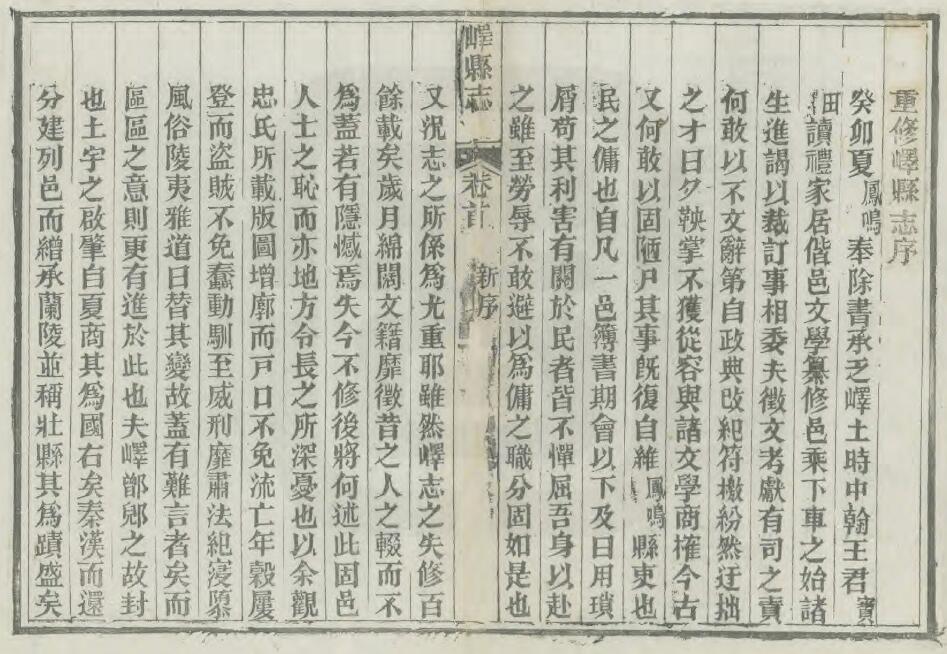 重修嶧縣志序
癸卯夏鳳鳴奉除書承乏嶧土時中翰王君寶
田讀禮家居偕邑文學纂修邑乘下車之始諸
生進謁以裁訂事相委夫徵文考獻有司之責
何敢以不文辭第自政典改紀符檄紛然迂拙
之才日夕鞅掌不獲從容與諸文學商搉今古
又何敢以固陋尸其事旣復自維鳳鳴縣吏也
民之傭也自凡一邑簿書期會以下及日用瑣
屑苟其利害有關於民者皆不憚屈吾身以赴
之雖至勞辱不敢避以爲傭之職分固如是也
嶧縣志 卷首 新序
又況志之所係爲尤重耶雖然嶧志之失修百
餘載矣歲月綿闊文籍靡徵昔之人之輟而不
爲蓋若有隱憾焉失今不修後將何述此固邑
人士之恥而亦地方令長之所深憂也以余觀
忠氏所載版圖增廓而戸口不免流亡年穀屢
登而盜賊不免蠢動馴至威刑靡肅法紀寖隳
風俗陵夷雅道日替其變故蓋有難言者矣而
區區之意則更有進於此也夫嶧鄫郳之故封
也土宇之啟肇自夏商其爲國右矣秦漢而還
分建列邑而繒承蘭陵並稱壯縣其爲蹟盛矣